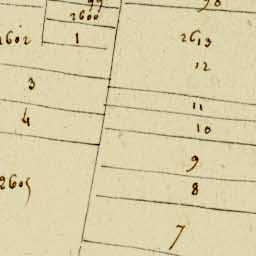 98
2600
2602
1
2613
12
3
11
4
10
9
2605
8
7